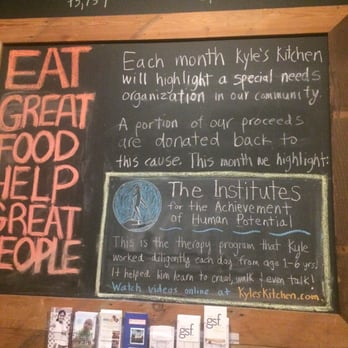 EAT
GREAT
FOOD
HELP
GREAT
PEOPLE
Each month Kyle's Kitchen
will highlight a special needs
organization in our community.
A portion of our proceeds
are donated back to
this cause. This month we highlight:
The Institutes
for the Achievement
of Human Potential
This is the therapy program that Kyle
worked diligently each day from age 1-6 yrs!
It helped him learn to crawl, walk & even talk!
Watch videos online at KylesKitchen.com
gsf
gsf